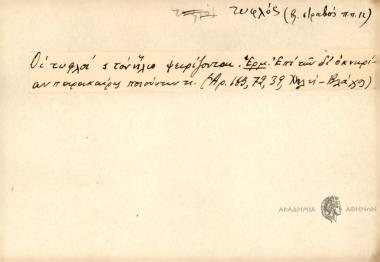 τυφλός (β. στραβός π.π. 12)
Οἱ τυφλοί 'ς τὸν ἥλιο ψειρίζονται. Ἑρμ. Ἐπὶ τῶν δι' ὀκνηρί-
αν παρακαίρως ποιούντων τι. (Ἀρ. 189, 72, 39,
ΑΚΑΔΗΜΙΑ ΑΘΗΝΩΝ